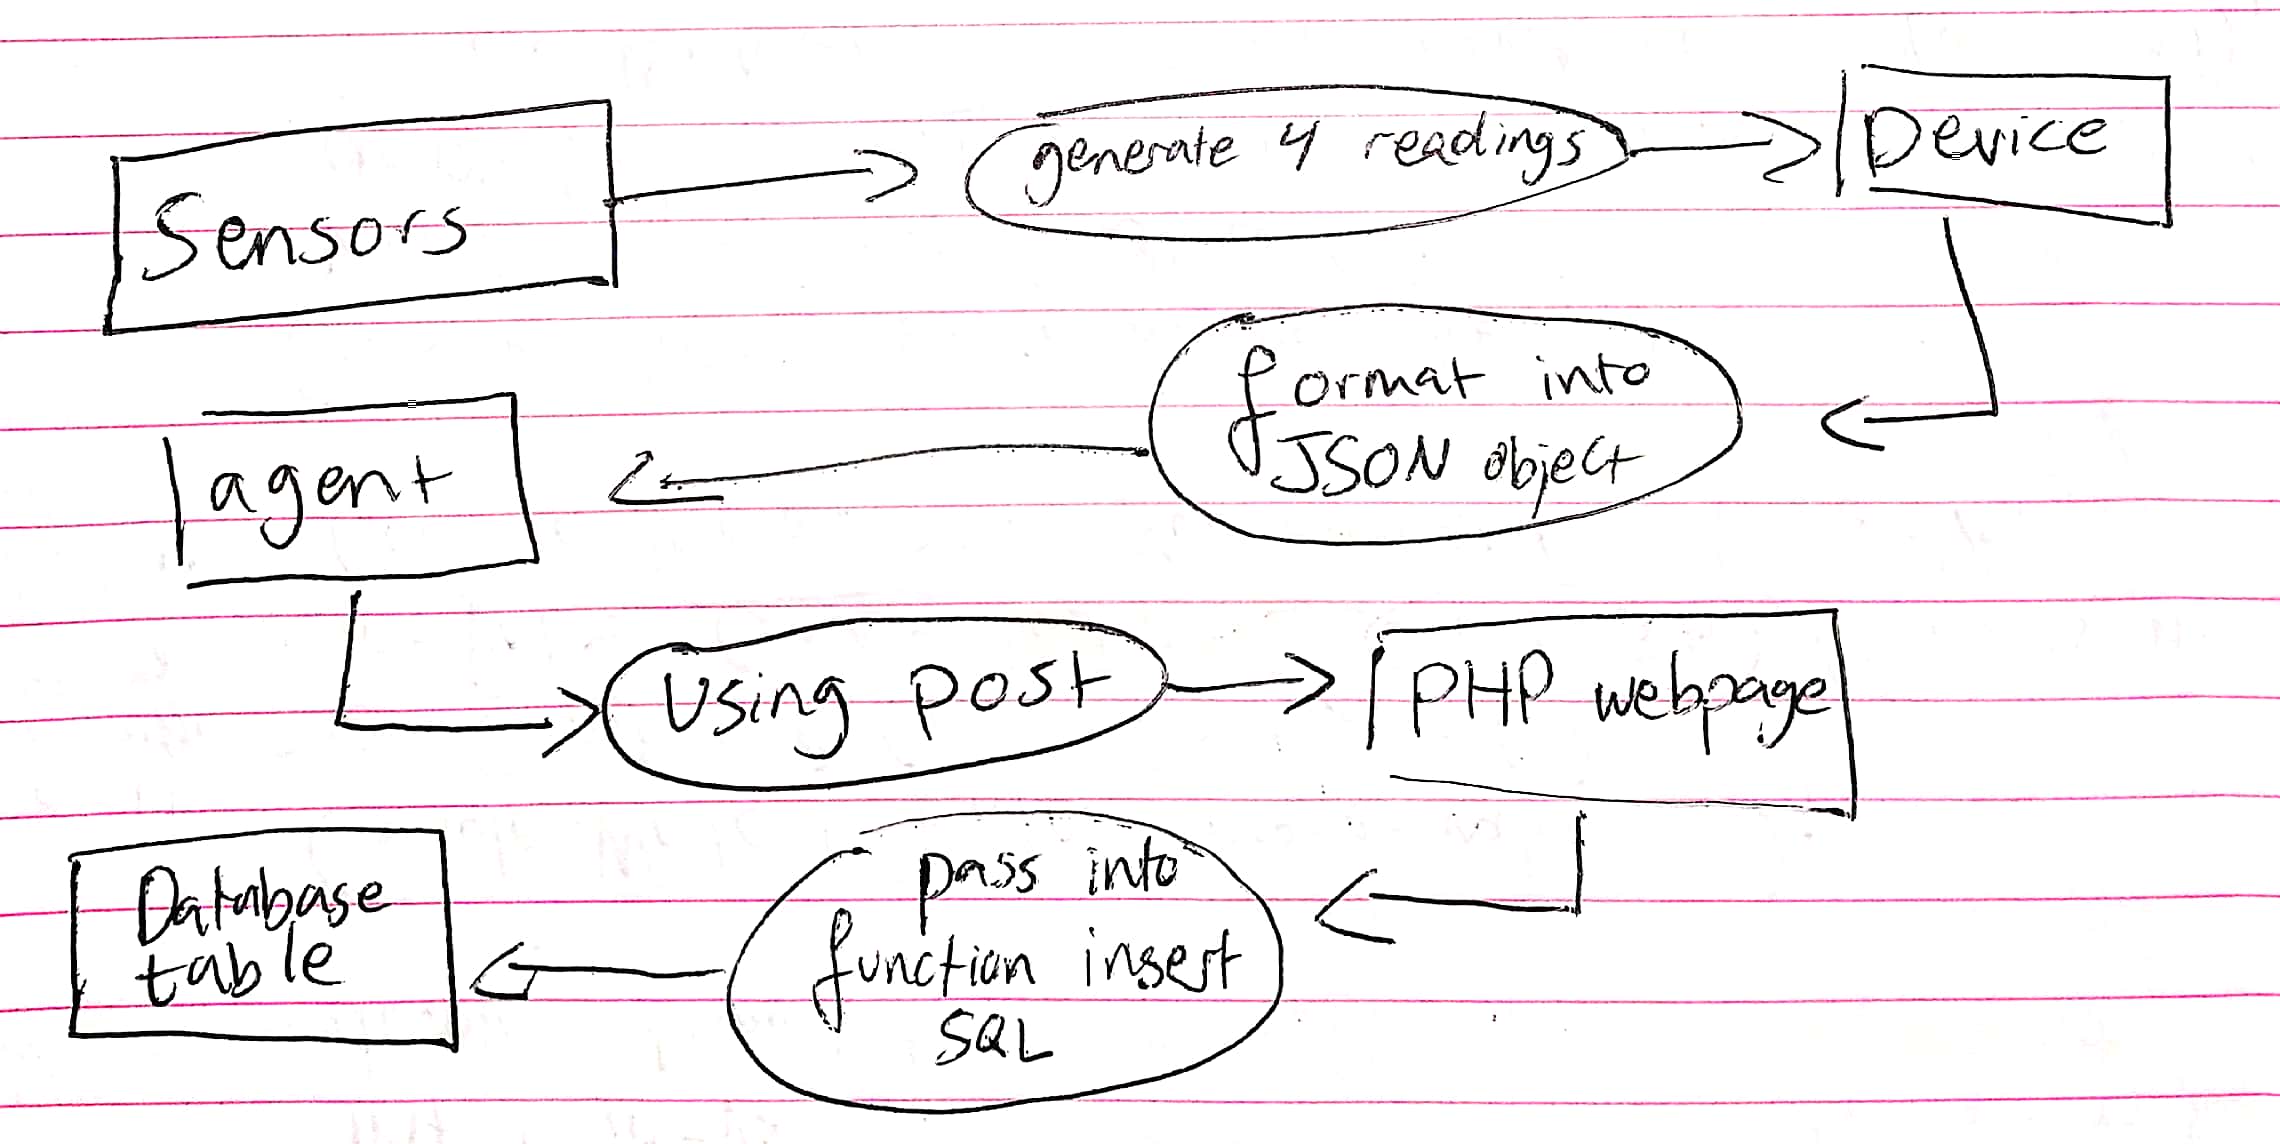 Sensors
generate 4 readings
Device
format into
JSON object
agent
Using post
PHP webpage
pass into
function insert
SQL
Database
table